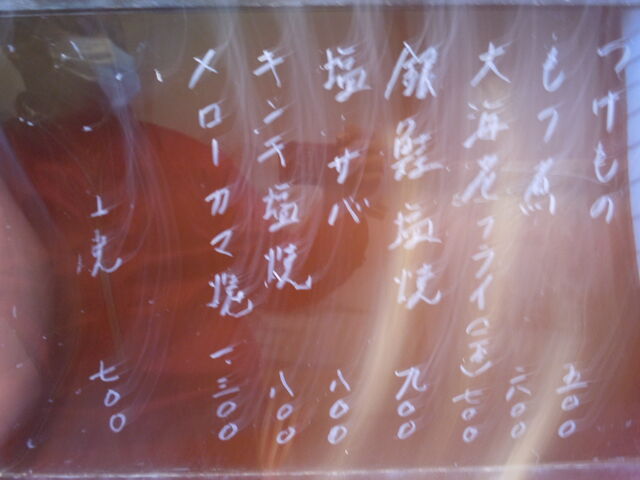 つけもの 五〇〇
もつ煮 六〇〇
大海老フライ(一本) 七〇〇
銀鮭塩焼 九〇〇
塩サバ 八〇〇
キンキ塩焼 八〇〇
メローカマ焼 一、三〇〇
焼 七〇〇